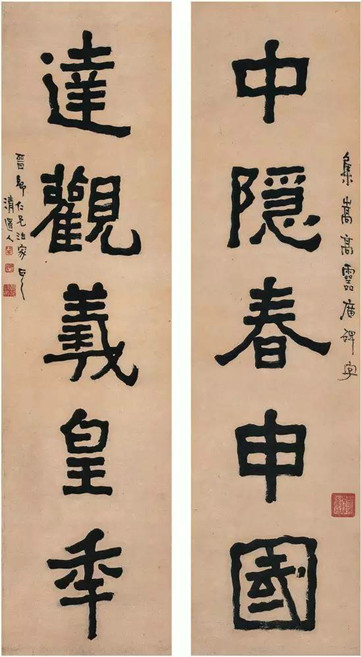 集嵩高靈廟碑字
中隱春申國
達觀羲皇秊
仁兄法家正之
清道人